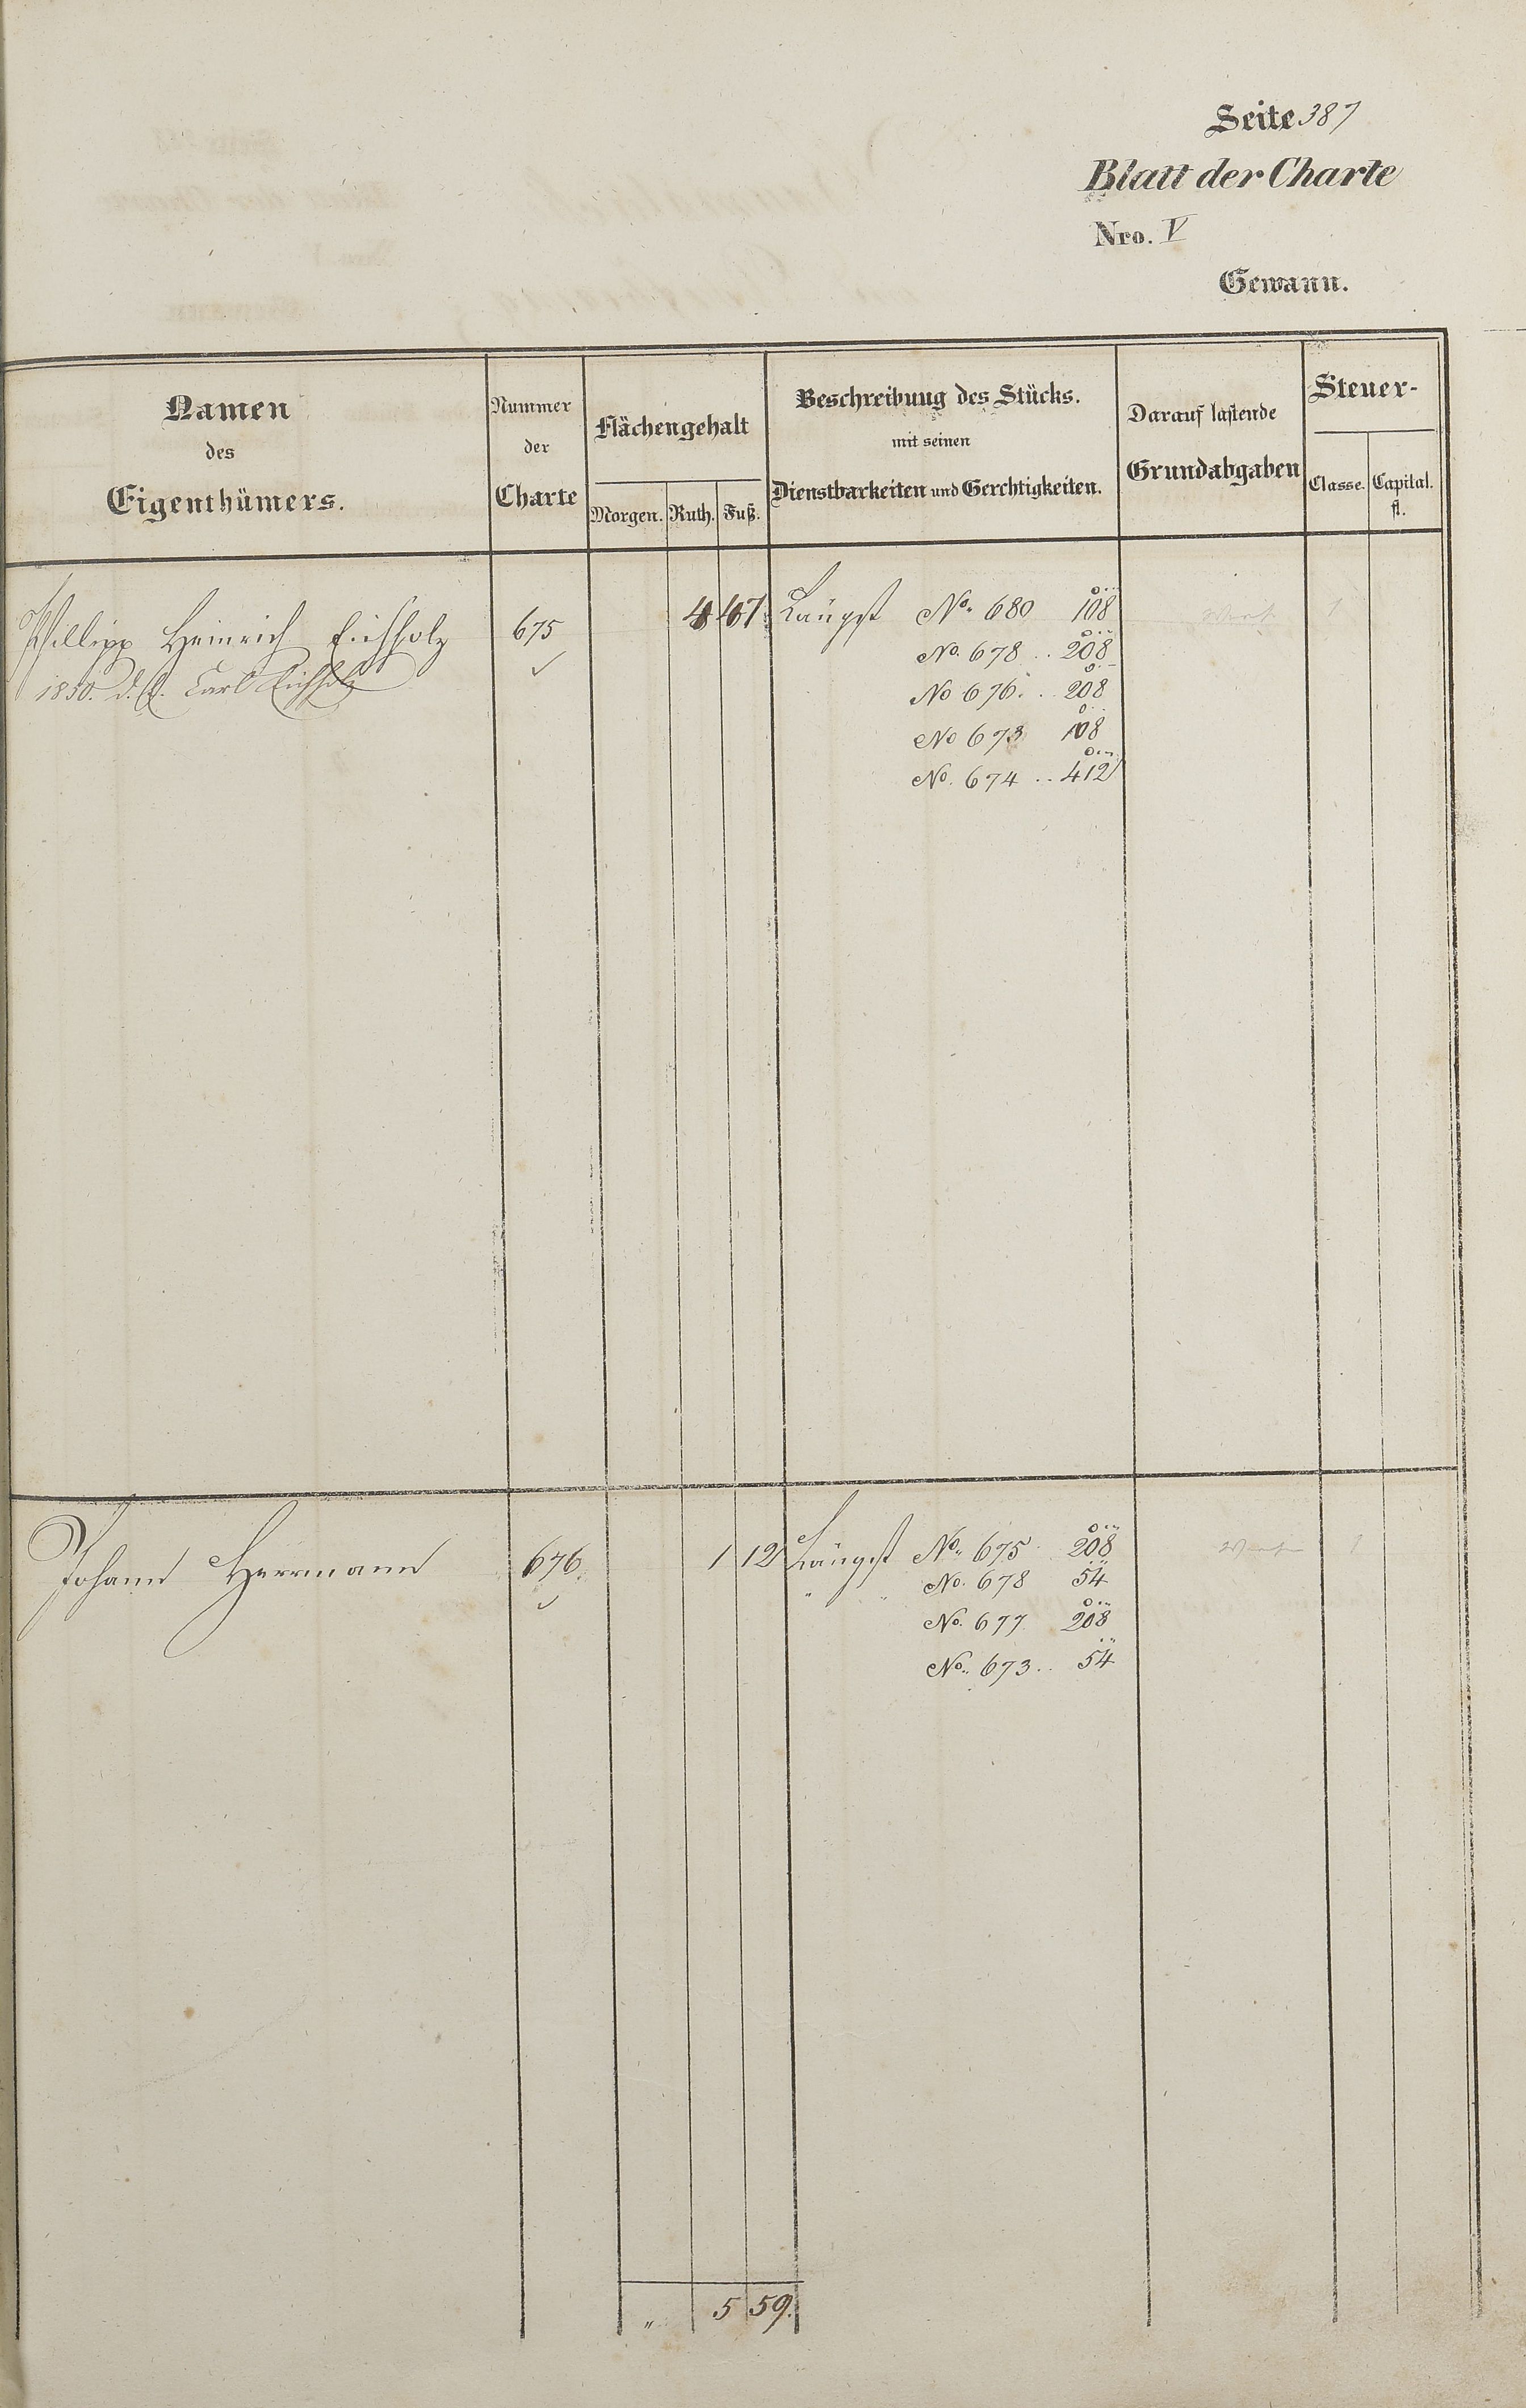 Seite 387
Blatt der Charte
Nro. V
Gewann.
Namen des Eigenthümers.
Nummer der Charte
Flächengehalt
Morgen. Ruth. Fuß.
Beschreibung des Stücks. mit seinen Dienstbarkeiten und Gerchtigkeiten.
Darauf lastende Grundabgaben
Steuer-
Classe. Capital. fl.
Phillipp Heinrich Eichholz 675 4 47 Längst No. 680 108 1
1850. d. C. Carl Eichholz
No. 678 .. 208
No 676. .. 208
No 673 108
No. 674 .. 412
Johann Herrmann 676. 1 12 Längst No. 675 208 1
" " No. 678 54
No. 677 208
No. 673 .. 54
" 5 59.